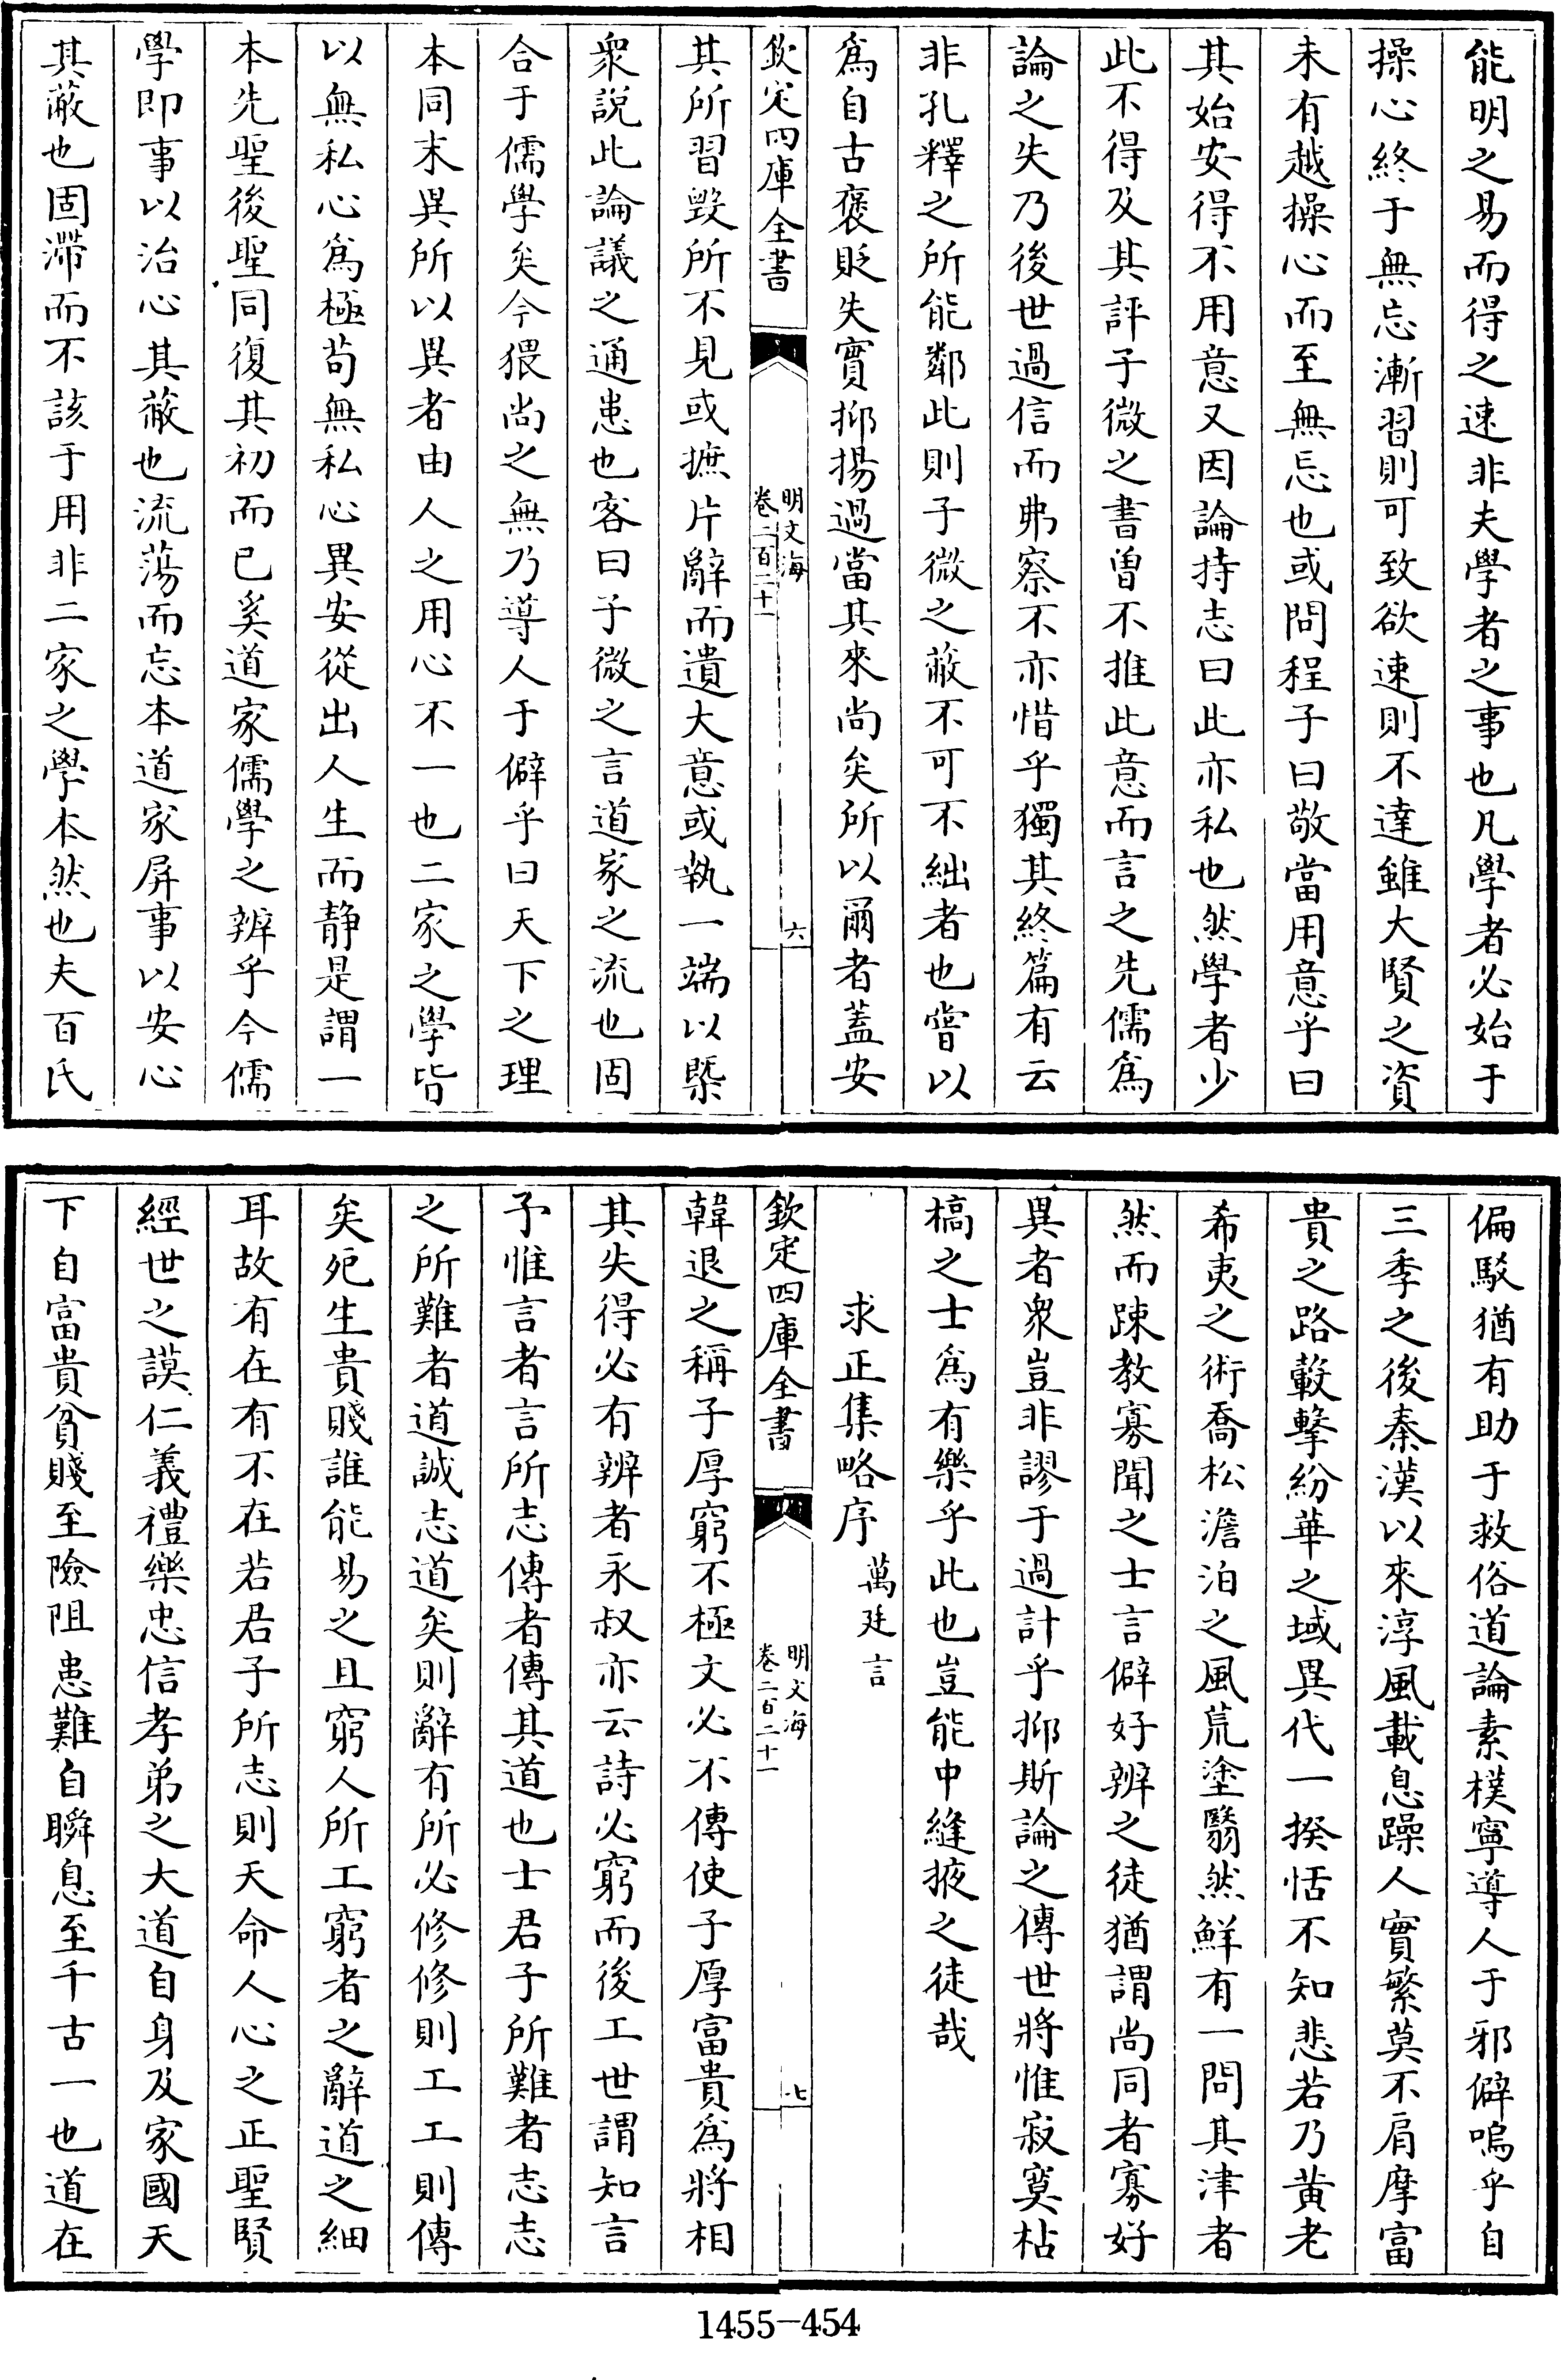 能明之易而得之速非夫學者之事也凡學者必始于
操心終于無忘漸習則可致欲速則不達雖大賢之資
未有越操心而至無忘也或問程子曰敬當用意乎曰
其始安得不用意又因論持志曰此亦私也然學者少
此不得及其評子微之書曽不推此意而言之先儒爲
論之失乃後世過信而弗察不亦惜乎獨其終篇有云
非孔釋之所能鄰此則子微之蔽不可不絀者也嘗以
爲自古褒貶失實抑揚過當其來尚矣所以爾者蓋安
欽定四庫全書
明文海
卷二百二十一
六
其所習毀所不見或摭片辭而遺大意或執一端以槩
衆說此論議之通患也客曰子微之言道家之流也固
合于儒學矣今猥尚之無乃導人于僻乎曰天下之理
本同末異所以異者由人之用心不一也二家之學皆
以無私心爲極苟無私心異安從出人生而静是謂一
本先聖後聖同復其初而已奚道家儒學之辨乎今儒
學即事以治心其蔽也流蕩而忘本道家屏事以安心
其蔽也固滯而不該于用非二家之學本然也夫百氏
偏駁猶有助于救俗道論素樸寧導人于邪僻嗚乎自
三季之後秦漢以來淳風載息躁人實繁莫不肩摩富
貴之路轂擊紛華之域異代一揆恬不知悲若乃黄老
希夷之術喬松澹泊之風荒塗翳然鮮有一問其津者
然而踈教寡聞之士言僻好辨之徒猶謂尚同者寡好
異者衆豈非謬于過計乎抑斯論之傳世將惟寂寞枯
槁之士爲有樂乎此也豈能中縫掖之徒哉
求正集略序
萬廷言
欽定四庫全書
明文海
卷二百二十一
七
韓退之稱子厚窮不極文必不傳使子厚富貴爲將相
其失得必有辨者永叔亦云詩必窮而後工世謂知言
予惟言者言所志傳者傳其道也士君子所難者志志
之所難者道誠志道矣則辭有所必修修則工工則傳
矣死生貴賤誰能易之且窮人所工窮者之辭道之細
耳故有在有不在若君子所志則天命人心之正聖賢
經世之謨仁義禮樂忠信孝弟之大道自身及家國天
下自富貴貧賤至險阻患難自瞬息至千古一也道在
1455-454